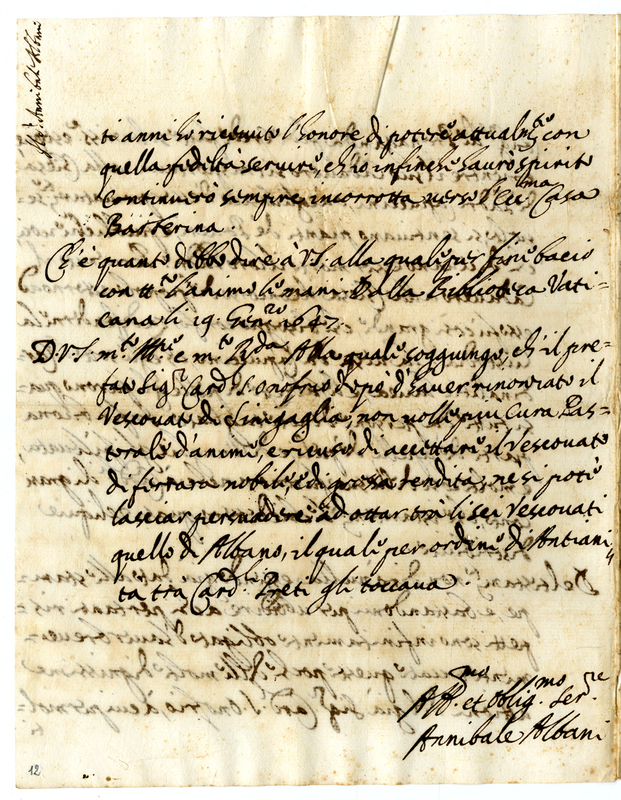 Di Annibale Albani
ti anni hò riceuuto l'honore di potere attualm.te con
quella fedeltà seruire, ch'io infinche haurò spirito
continuerò sempre incorrotta verso l'Ecc.ma Casa
Barberina.
Ch'è quanto debbo dire à V.S. alla quale per fine bacio
con tt.o l'animo le mani. Dalla Biblioteca Vati=
cana li 19. Gen.ro 1647.
D.V.S. m.to Ill.re e m.to R.da Alla quale soggiungo, ch'il pre=
fato Sig.r Card. S. Onofrio dopò d'hauer rinontiato il
Vescouato di Sinigaglia, non volle piu Cura Pas=
torale d'anime, e ricusò di accettare il Vescouato
di ferrara nobile, e di grossa rendita, nè si potè
lasciar persuadere ad ottar trà li sei Vescouati
quello di Albano, il quale per ordine di Antiani=
ta tra Card. Preti gli toccaua.
Aff.mo et oblig.mo Ser.re
Annibale Albani
12